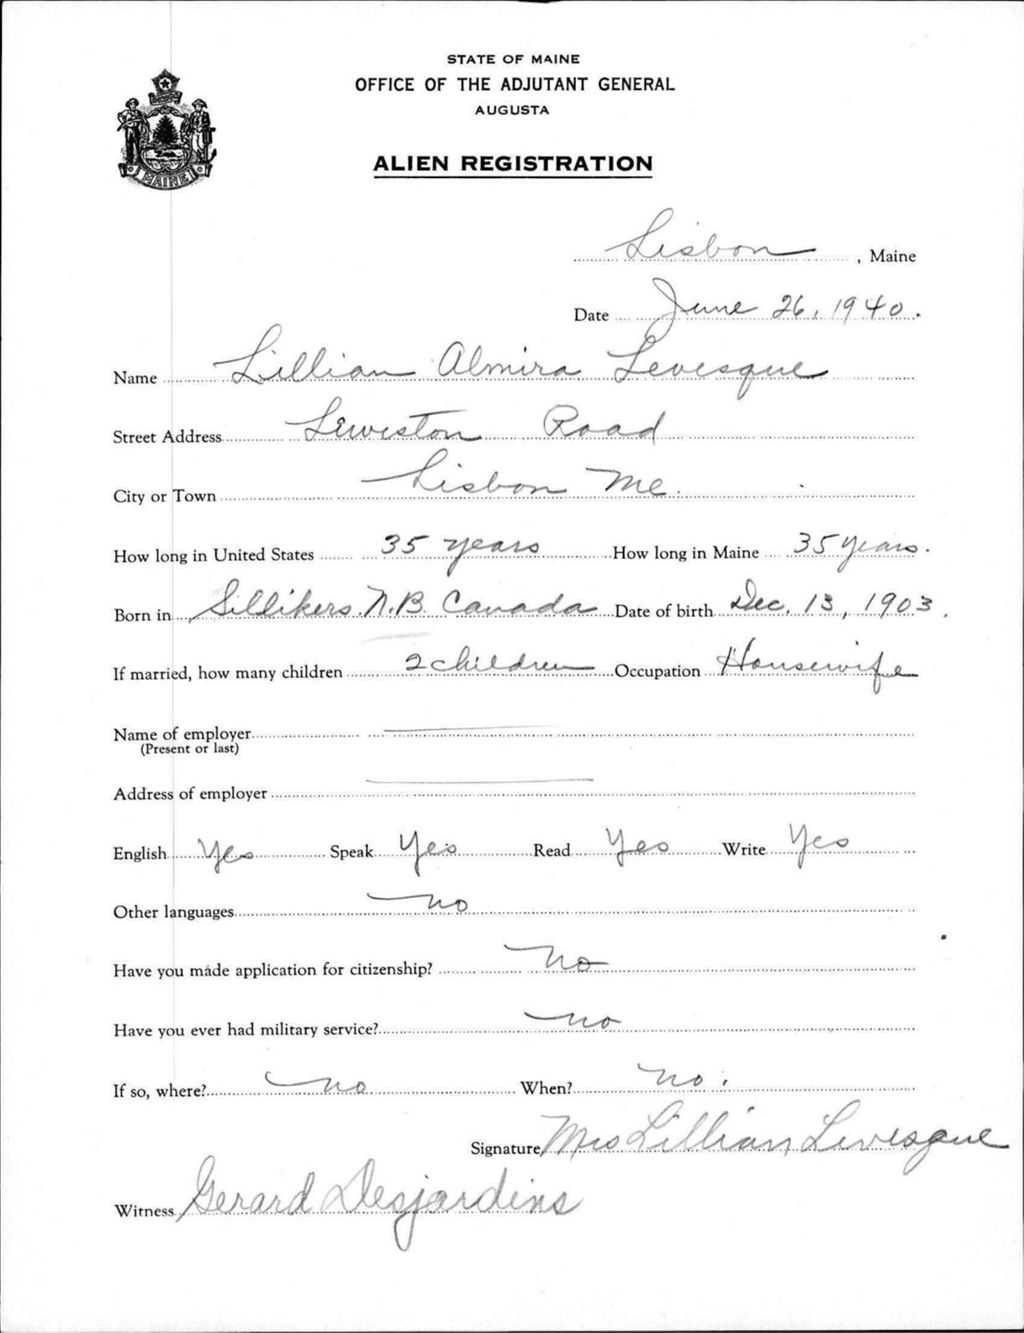 STATE OF MAINE
OFFICE OF THE ADJUTANT GENERAL
AUGUSTA
ALIEN REGISTRATION
MAINE
Lisbon, Maine
Date June 26, 1940.
Name Lillian Almira Levesque
Street Address Lewiston Road
City or Town Lisbon Me.
How long in United States 35 years How long in Maine 35 years.
Born in Sillikers N.B. Canada Date of birth Dec. 13, 1903.
If married, how many children 2 children Occupation Housewife
Name of employer
(Present or last)
Address of employer
English Yes Speak Yes Read Yes Write Yes
Other languages no
Have you made application for citizenship? No
Have you ever had military service? no
If so, where? no When? no.
Signature Mrs Lillian Levesque
Witness Gerard Desjardins